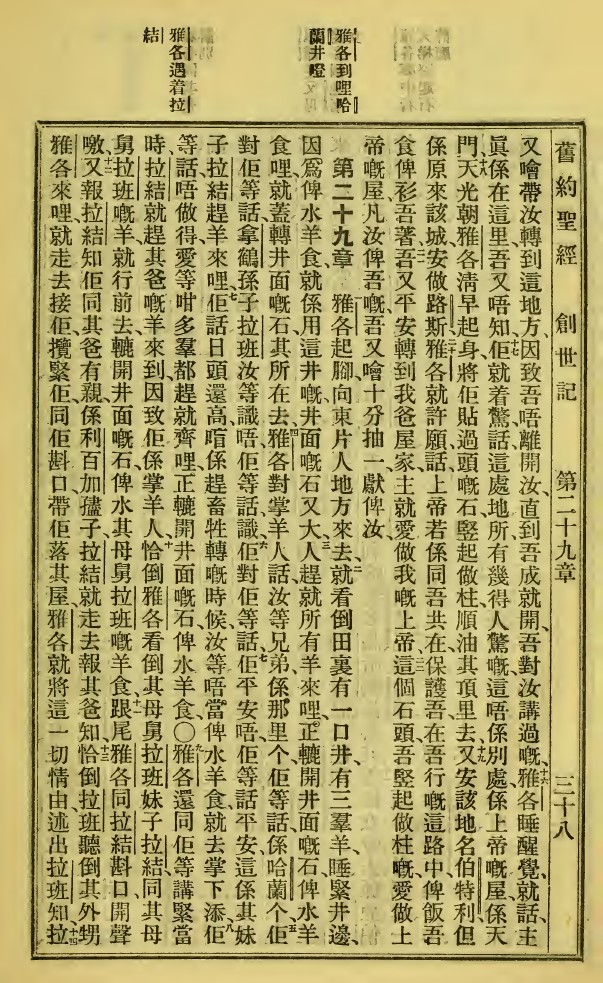 雅各到哩哈
蘭井墱
雅各遇着拉
結
舊約聖經 創世記 第二十九章 三十八
又噲帶汝轉到這地方、因致吾唔離開汝、直到吾成就開吾對汝講過嘅、十六雅各睡醒覺、就話、主
眞係在這里、吾又唔知、十七佢就着驚、話、這處地所、有幾得人驚嘅、這唔係別處、係上帝嘅屋、係天
門、十八天光朝、雅各淸早起身、將佢貼過頭嘅石、竪起做柱、順油其頂里去、十九又安該地名伯特利、但
係原來該城安做路斯、二十雅各就許願、話、上帝若係同吾共在、保護吾在吾行嘅這路中、俾飯吾
食、俾衫吾著、二一吾又平安轉到我爸屋家、主就愛做我嘅上帝、二二這個石頭、吾竪起做柱嘅、愛做上
帝嘅屋、凡汝俾吾嘅、吾又噲十分抽一獻俾汝、
第二十九章 一雅各起腳、向東片人地方來去、二就看倒田裏有一口井、有三羣羊、睡緊井邊、
因爲俾水羊食、就係用這井嘅、井面嘅石又大、三人趕就所有羊來哩、正轆開井面嘅石、俾水羊
食哩、就蓋轉井面嘅石、其所在去、四雅各對掌羊人話、汝等兄弟係那里个、佢等話、係哈蘭个、五佢
對佢等話、拿鶴孫子拉班、汝等識唔、佢等話、識、六佢對佢等話、佢平安唔、佢等話、平安、這係其妹
子拉結、趕羊來哩、七佢話、日頭還高、唔係趕畜牲轉嘅時候、汝等唔當俾水羊食、就去掌下添、八佢
等話、唔做得、愛等咁多羣都趕就齊哩、正轆開井面嘅石、俾水羊食、〇九雅各還同佢等講緊、當
時拉結就趕其爸嘅羊來到、因致佢係掌羊人、十恰倒雅各看倒其母舅拉班妹子拉結、同其母
舅拉班嘅羊、就行前去、轆開井面嘅石、俾水其母舅拉班嘅羊食、十一跟尾雅各同拉結斟口、開聲
噭、十二又報拉結知、佢同其爸有親、係利百加孻子、拉結就走去報其爸知、十三恰倒拉班聽倒其外甥
雅各來哩、就走去接佢、攬緊佢、同佢斟口、帶佢落其屋、雅各就將這一切情由、述出拉班知、十四拉